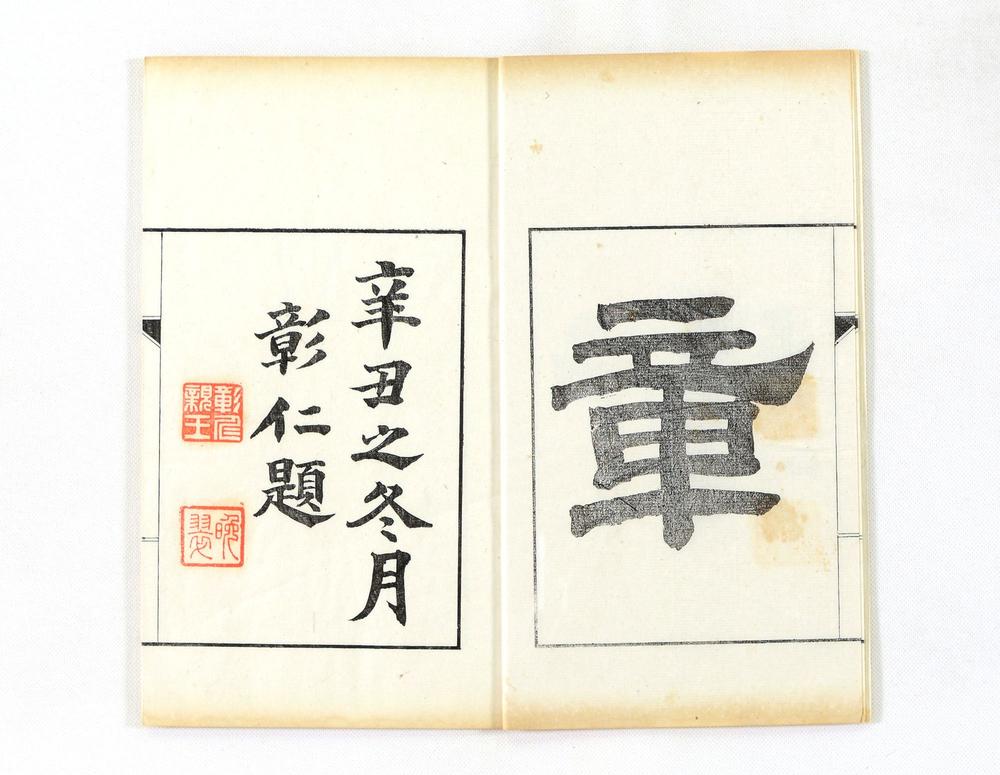 章
辛丑之冬月
彰仁題
彰仁親王
晩翠